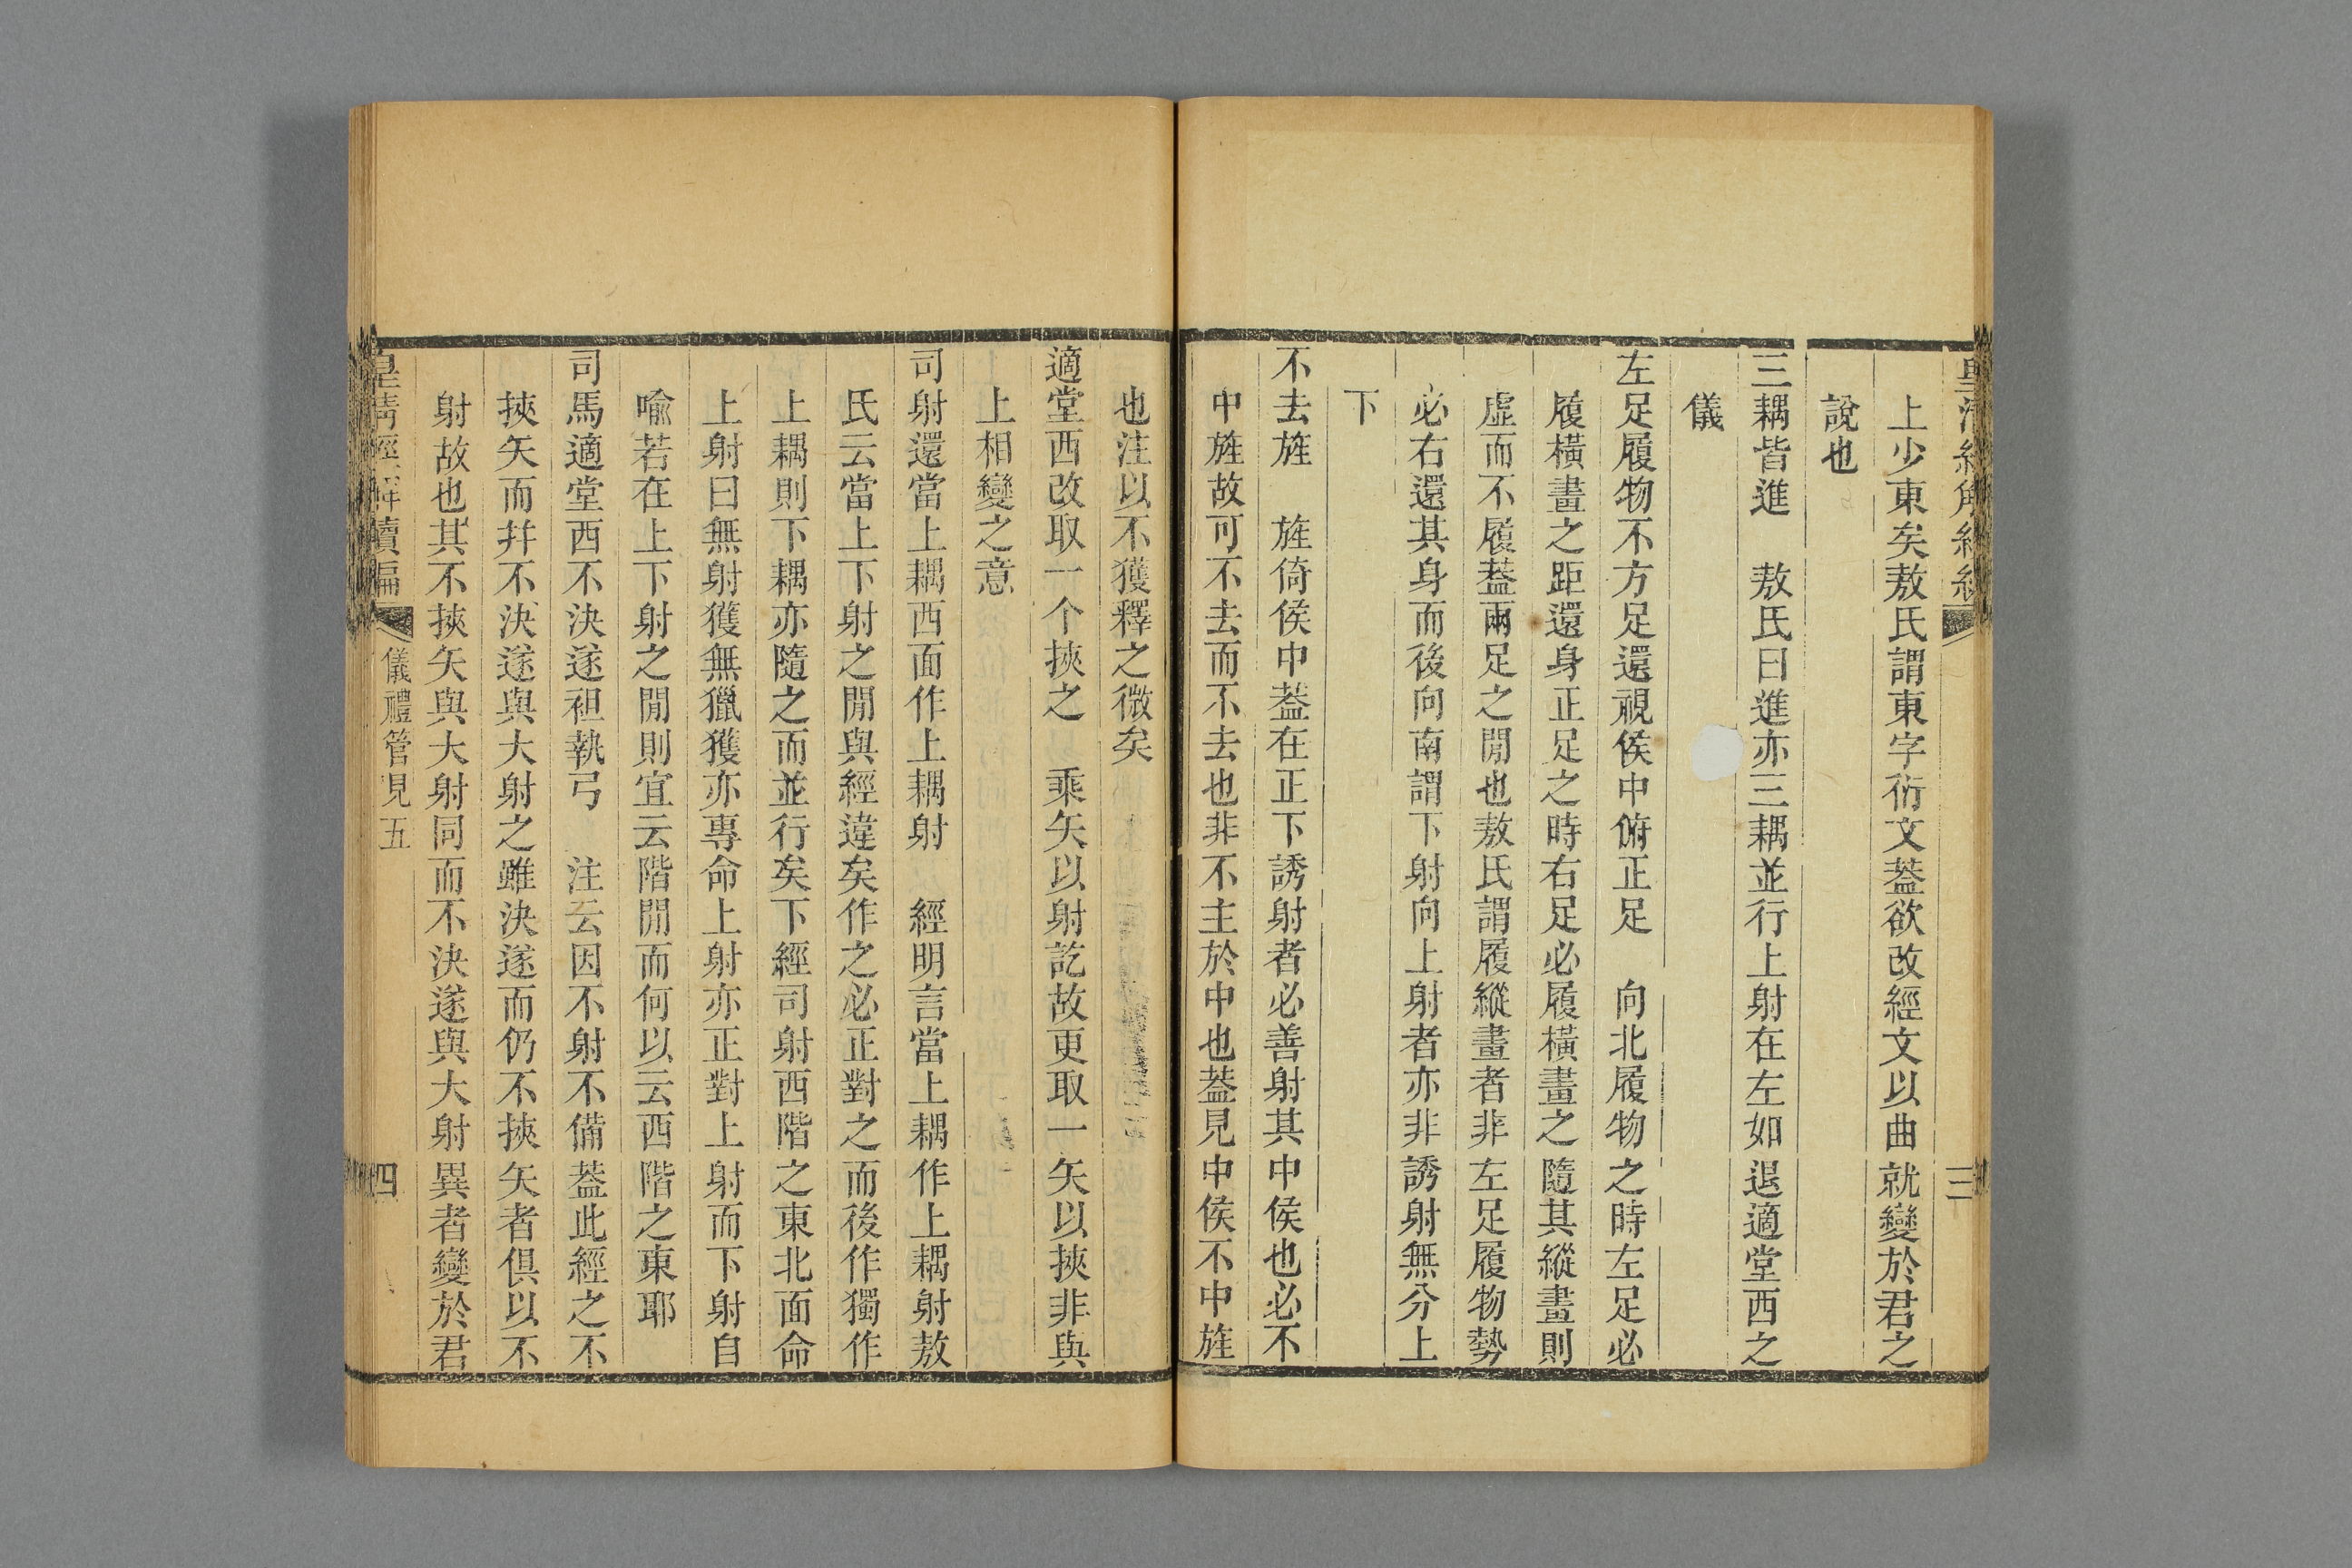 上少東矣敖氏謂東字衍文蓋欲改經文以曲就變於君之
說也
三耦皆進　敖氏曰進亦三耦並行上射在左如退適堂西之
儀
左足履物不方足還視侯中俯正足　向北履物之時左足必
履橫畫之距還身正足之時右足必履橫畫之隨其縱畫則
虛而不履蓋兩足之閒也敖氏謂履縱畫者非左足履物勢
必右還其身而後向南謂下射向上射者亦非誘射無分上
下
不去旌　旌倚侯中蓋在正下誘射者必善射其中侯也必不
中旌故可不去而不去也非不主於中也蓋見中侯不中旌
也注以不獲釋之微矣
適堂西改取一个挾之　乘矢以射訖故更取一矢以挾非與
上相變之意
司射還當上耦西面作上耦射　經明言當上耦作上耦射敖
氏云當上下射之閒與經違矣作之必正對之而後作獨作
上耦則下耦亦隨之而並行矣下經司射西階之東北面命
上射曰無射獲無獵獲亦專命上射亦正對上射而下射自
喻若在上下射之閒則宜云階閒而何以云西階之東耶
司馬適堂西不決遂袒執弓　注云因不射不備蓋此經之不
挾矢而幷不決遂與大射之雖決遂而仍不挾矢者俱以不
射故也其不挾矢與大射同而不決遂與大射異者變於君
皇清經解續編
儀禮管見五
四